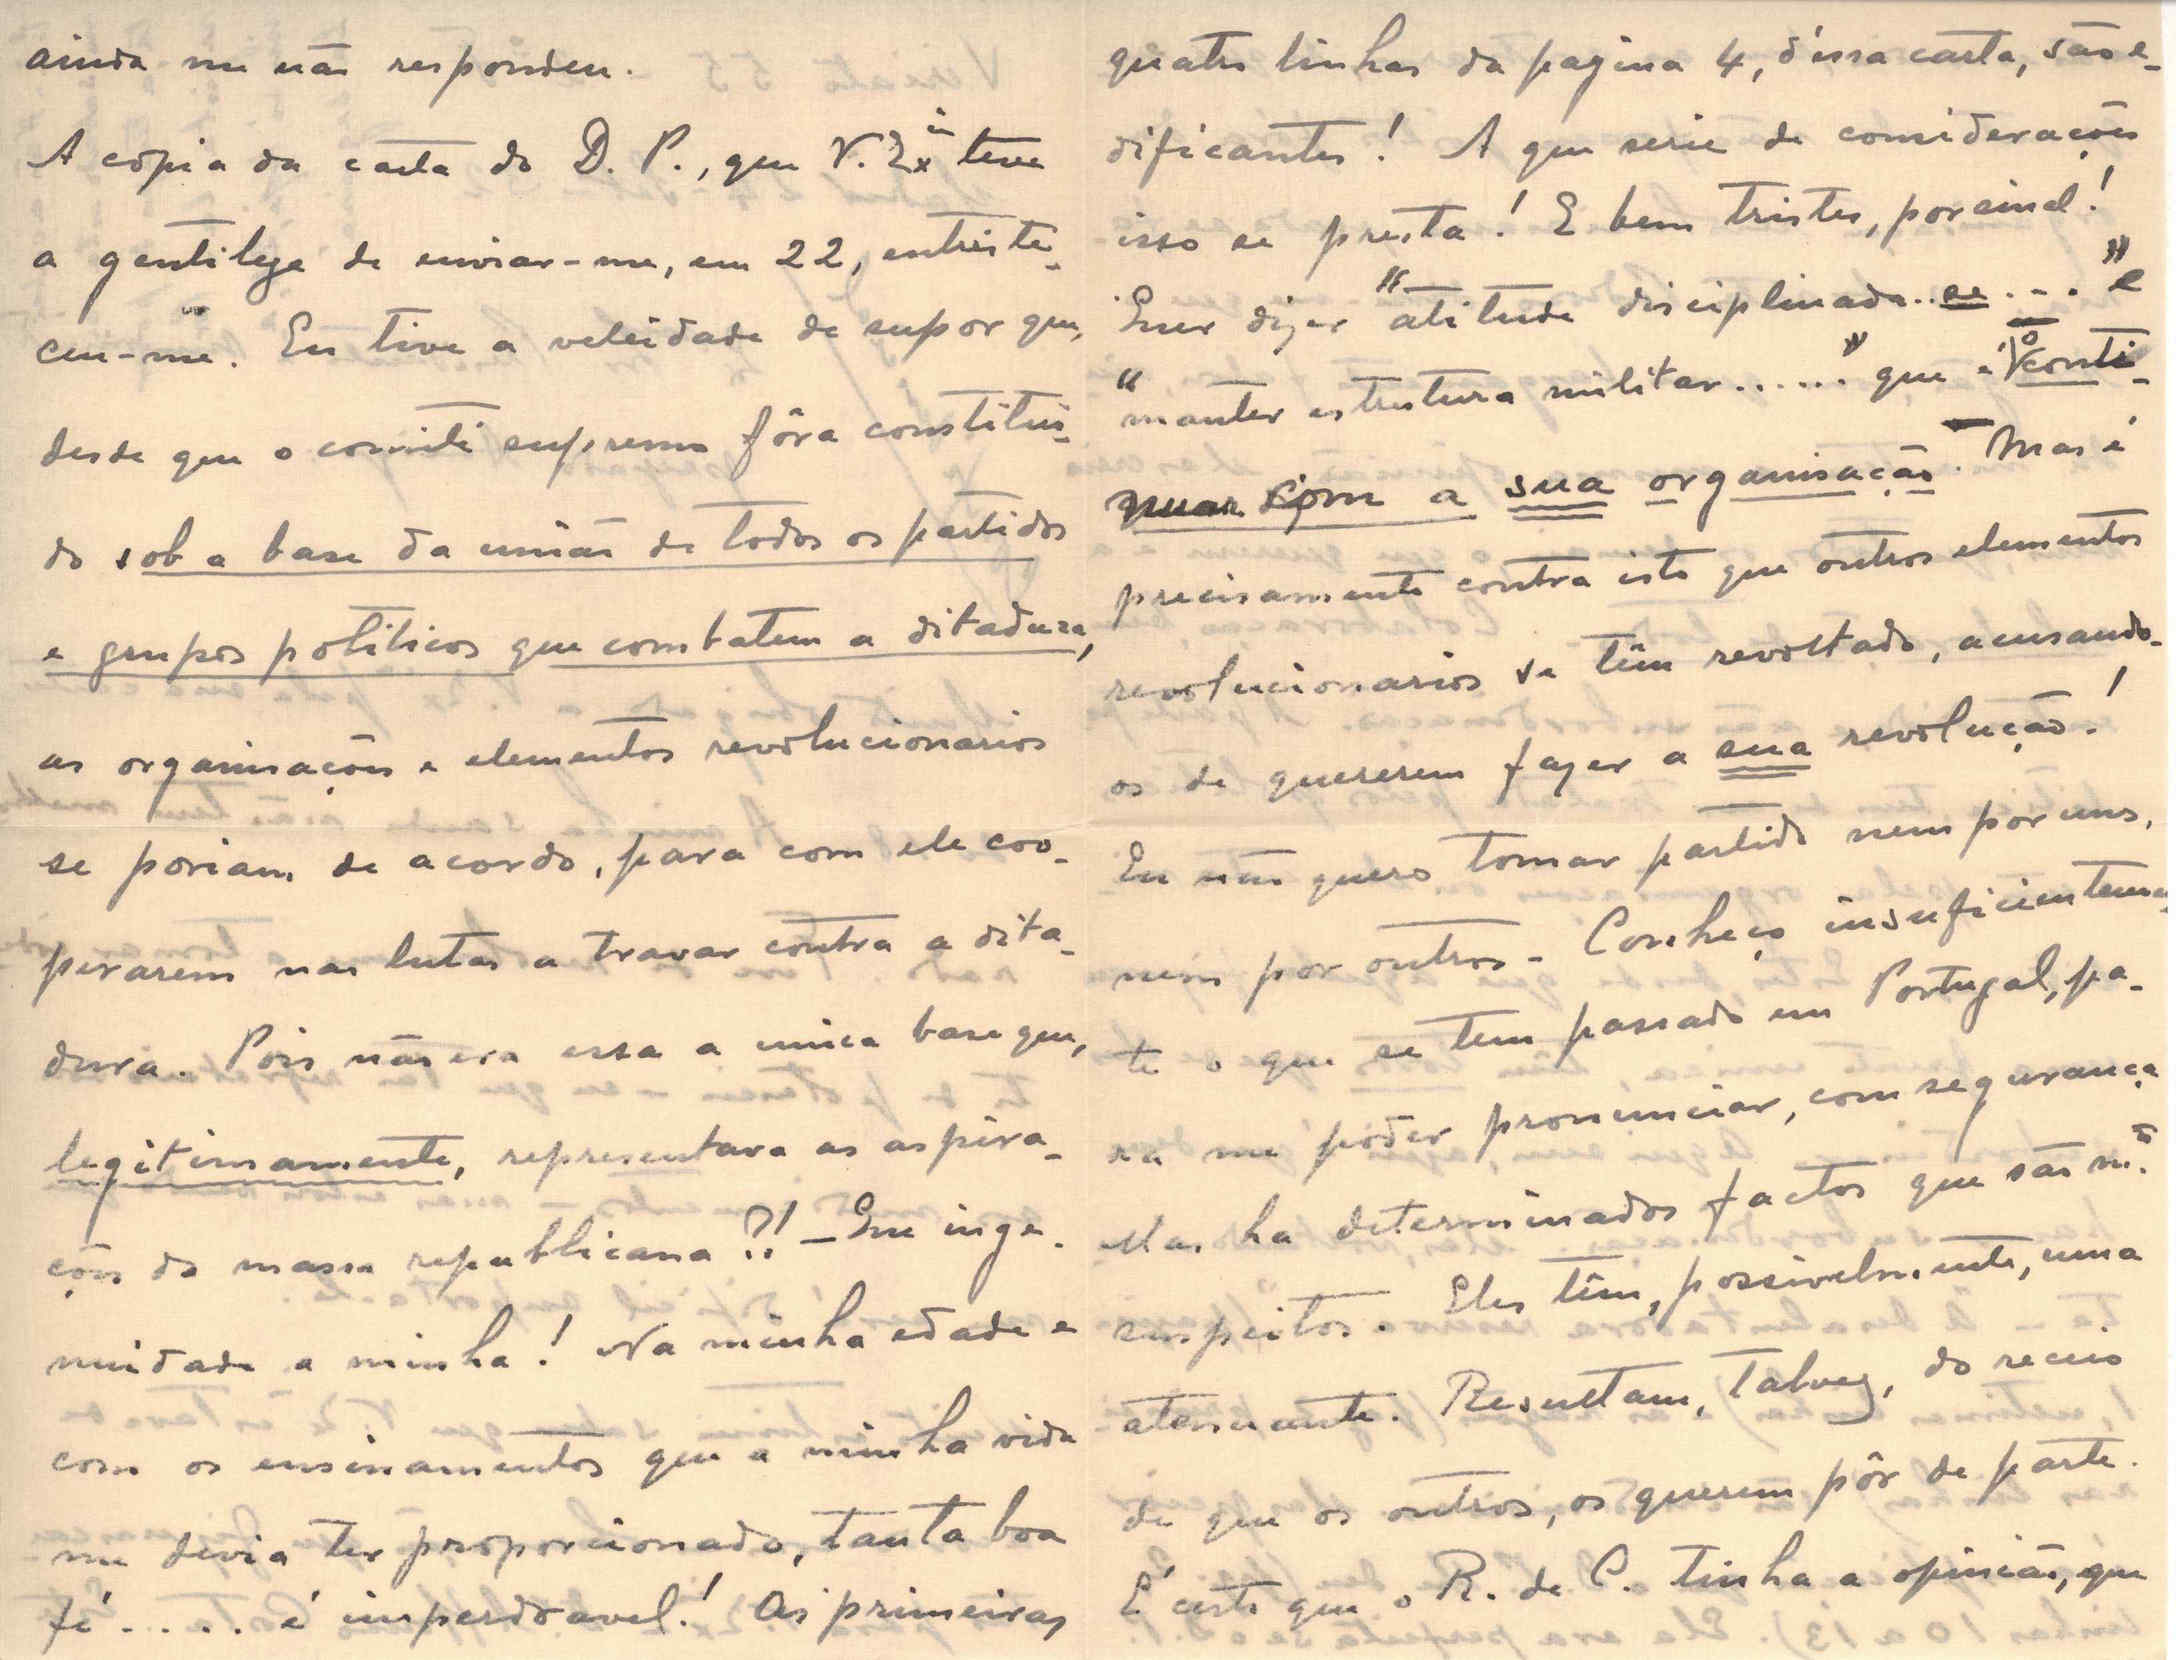 ainda me não respondeu.
A cópia da carta do D. P., que V. Exª teve
a gentileza de enviar-me, em 22, entriste-
ceu-me. Eu tive a veleidade de supor que,
desde que o comité supremo fôra constitui-
do sob a base da união de todos os partidos
e grupos políticos que combatem a ditadura,
as organisações e elementos revolucionarios
se poriam de acordo, para com ele coo-
perarem nas lutas a travar contra a dita-
dura. Pois não era essa a unica base que,
legitimamente, representava as aspira-
ções da massa republicana?! - Que inge-
nuidade a minha! Na minha edade e
com os ensinamentos que a minha vida
me devia ter proporcionado, tanta boa
fé..... é imperdoavel! As primeiras
quatro linhas da pagina 4, d'essa carta, são e-
dificantes! A que serie de considerações
isso se presta! E bem tristes, por sinal!
Quer dizer "atitude disciplinada..se...." e
"manter estrutura militar......" que é o conti-
nuar com a sua organisação. Mas é
precisamente contra isto que outros elementos
revolucionarios se têm revoltado, acusando-
os de quererem fazer a sua revolução!
Eu não quero tomar partido nem por uns,
nem por outros - Conheço insuficientemen-
te o que se tem passado em Portugal, pa-
ra me poder pronunciar, com segurança
Mas ha determinados factos que são mº.
suspeitos. Eles têm, possivelmente, uma
atenuante. Resultam, talvez, do receio
de que os outros, os querem pôr de parte.
É certo que o R. de C. tinha a opinião, que